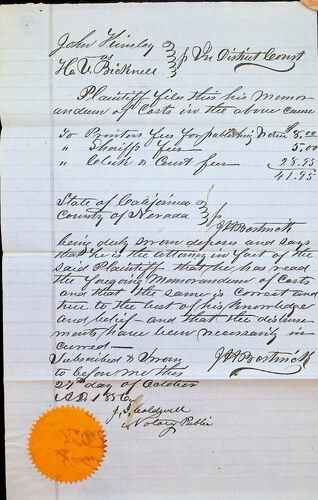 John Hinsley
vs
H. U. Bicknell
In District Court
Plaintiff files this his Memor
andum of Costs in the above cause
To Printers fees for publishing Notice $8.00
" Sheriffs fees 5.00
" Clerk & Court fees 28.95
41.95
State of California
County of Nevada
J H Bostwick
being duly sworn deposes and says
that he is the attorney in fact of the
said Plaintiff that he has read
the foregoing Memorandum of Costs
and that the same is correct and
true to the best of his knowledge
and belief and that the disburse
ments have been necessarily in
curred
Subscribed & Sworn
to before me this
27th day of October
A.D. 1856
J H Bostwick
J. S. Caldwell
Notary Public